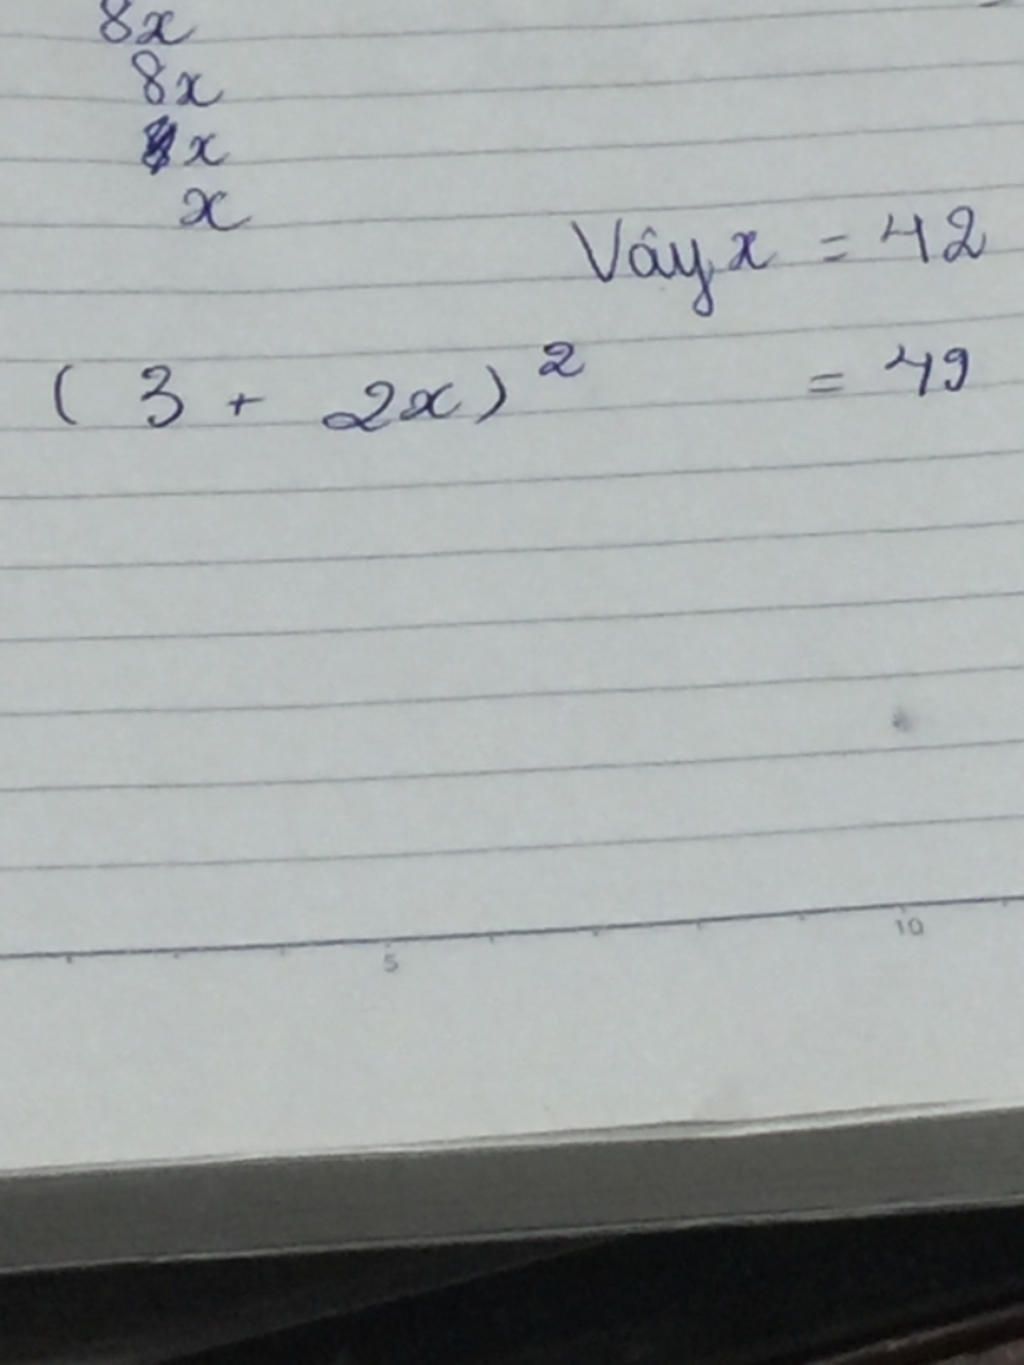 8x
8x
x
x
Vậy x = 42
(3 + 2x)² = 49
5 10